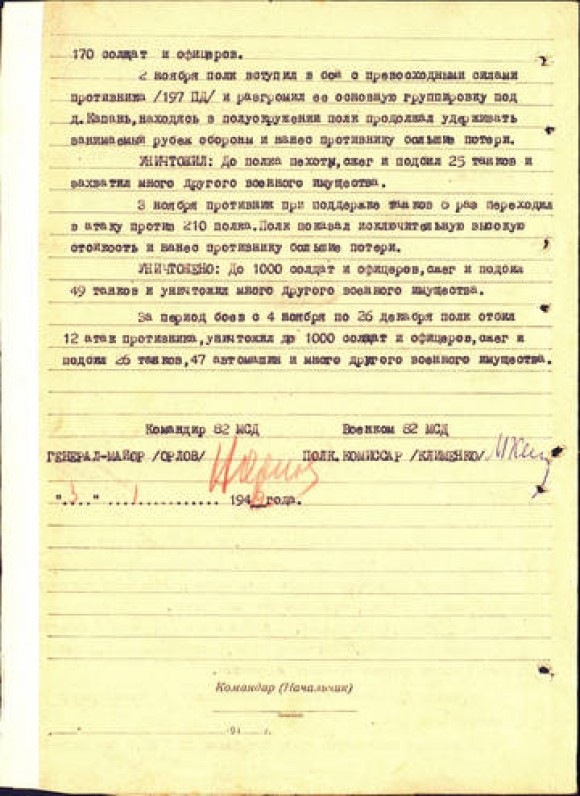 170 солдат и офицеров.
2 ноября полк вступил в бой с превосходными силами
противника /197 ПД/ и разгромил ее основную группировку под
д.Капань, находясь в полуокружении полк продолжал удерживать
занимаемый рубеж обороны и нанес противнику большие потери.
УНИЧТОЖИЛ: До полка пехоты, сжег и подбил 25 танков и
захватил много другого военного имущества.
3 ноября противник при поддержке танков 6 раз переходил
в атаку против 210 полка. Полк показал исключительную высокую
стойкость и нанес противнику большие потери.
УНИЧТОЖЕНО: До 1000 солдат и офицеров, сжег и подбил
49 танков и уничтожил много другого военного имущества.
За период боев с 4 ноября по 26 декабря полк отбил
12 атак противника, уничтожил до 1000 солдат и офицеров, сжег и
подбил 26 танков, 47 автомашин и много другого военного имущества.
Командир 82 МСД Военком 82 МСД
ГЕНЕРАЛ-МАЙОР /ОРЛОВ/ ПОЛК. КОМИССАР /КЛИМЕНКО/
"3" 1 194 года.
Командир (Начальник)
194 г.